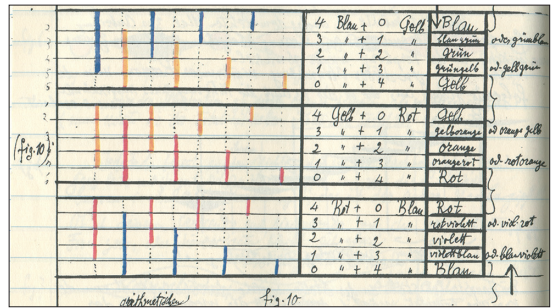 4 Blau + 0 Gelb Blau
3 " + 1 " blaugrün od. grünblau
2 " + 2 " Grün
1 " + 3 " grüngelb od. gelbgrün
0 " + 4 " Gelb
4 Gelb + 0 Rot Gelb
3 " + 1 " gelborange od orangegelb
(fig. 10)
2 " + 2 " orange
1 " + 3 " orangerot od. rotorange
0 " + 4 " Rot
4 Rot + 0 Blau Rot
3 " + 1 " rotviolett od. viol. rot
2 " + 2 " violett
1 " + 3 " violettblau od. blauviolett
0 " + 4 " Blau
arithmetischen fig. 10